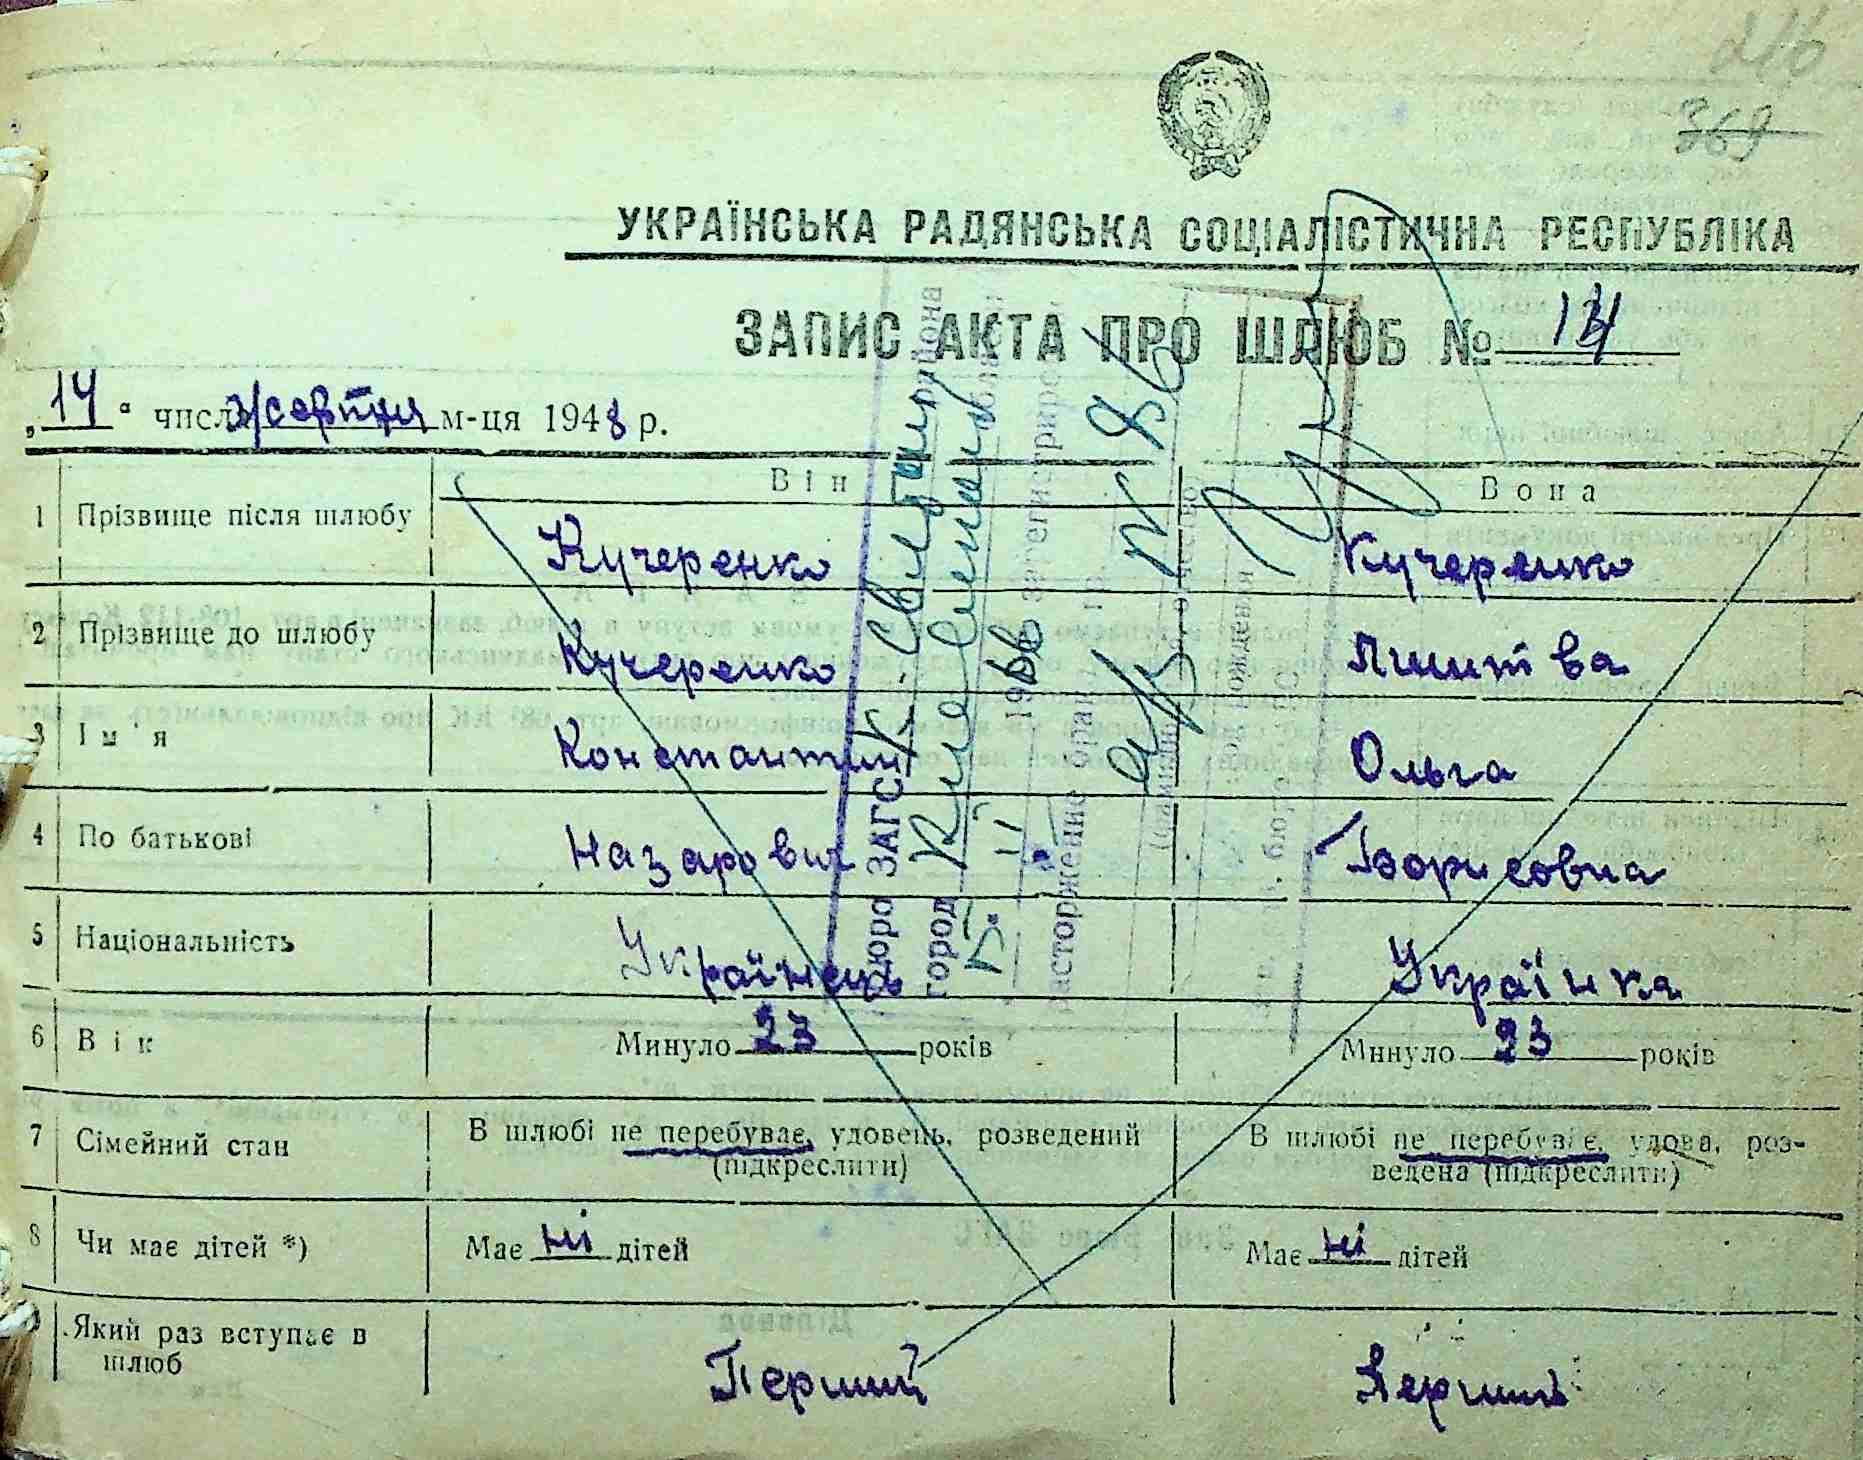 216
369
УКРАЇНСЬКА РАДЯНСЬКА СОЦІАЛІСТИЧНА РЕСПУБЛІКА
ЗАПИС АКТА ПРО ШЛЮБ №
„14“ числа серпня м-ця 1948 р.
Він Вона
1 Прізвище після шлюбу Кучеренко Кучеренко
2 Прізвище до шлюбу Кучеренко
3 Ім'я Константин Ольга
4 По батькові Назарович Борисовна
5 Національність Українець Українка
6 Вік Минуло 23 років Минуло 23 років
7 Сімейний стан В шлюбі не перебуває, удовець, розведений (підкреслити) В шлюбі не перебуває, удова, розведена (підкреслити)
8 Чи має дітей *) Має ні дітей Має ні дітей
9 Який раз вступає в шлюб Перший Перший
Бюро ЗАГС
город
1966 зарегистрировано
расторжение брака
№ 86